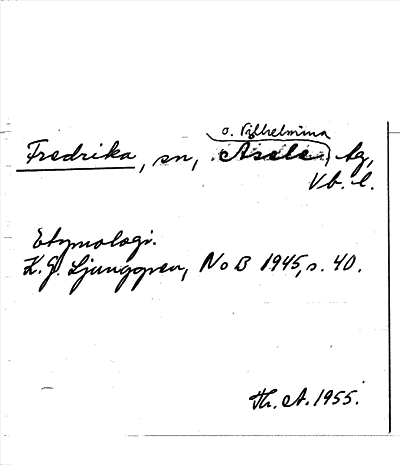 o. Vilhelmina
Fredrika, sn, Åsele tg,
Vb. l.
Etymologi.
K.G. Ljunggren, NoB 1945, s. 40.
Th. A. 1955.